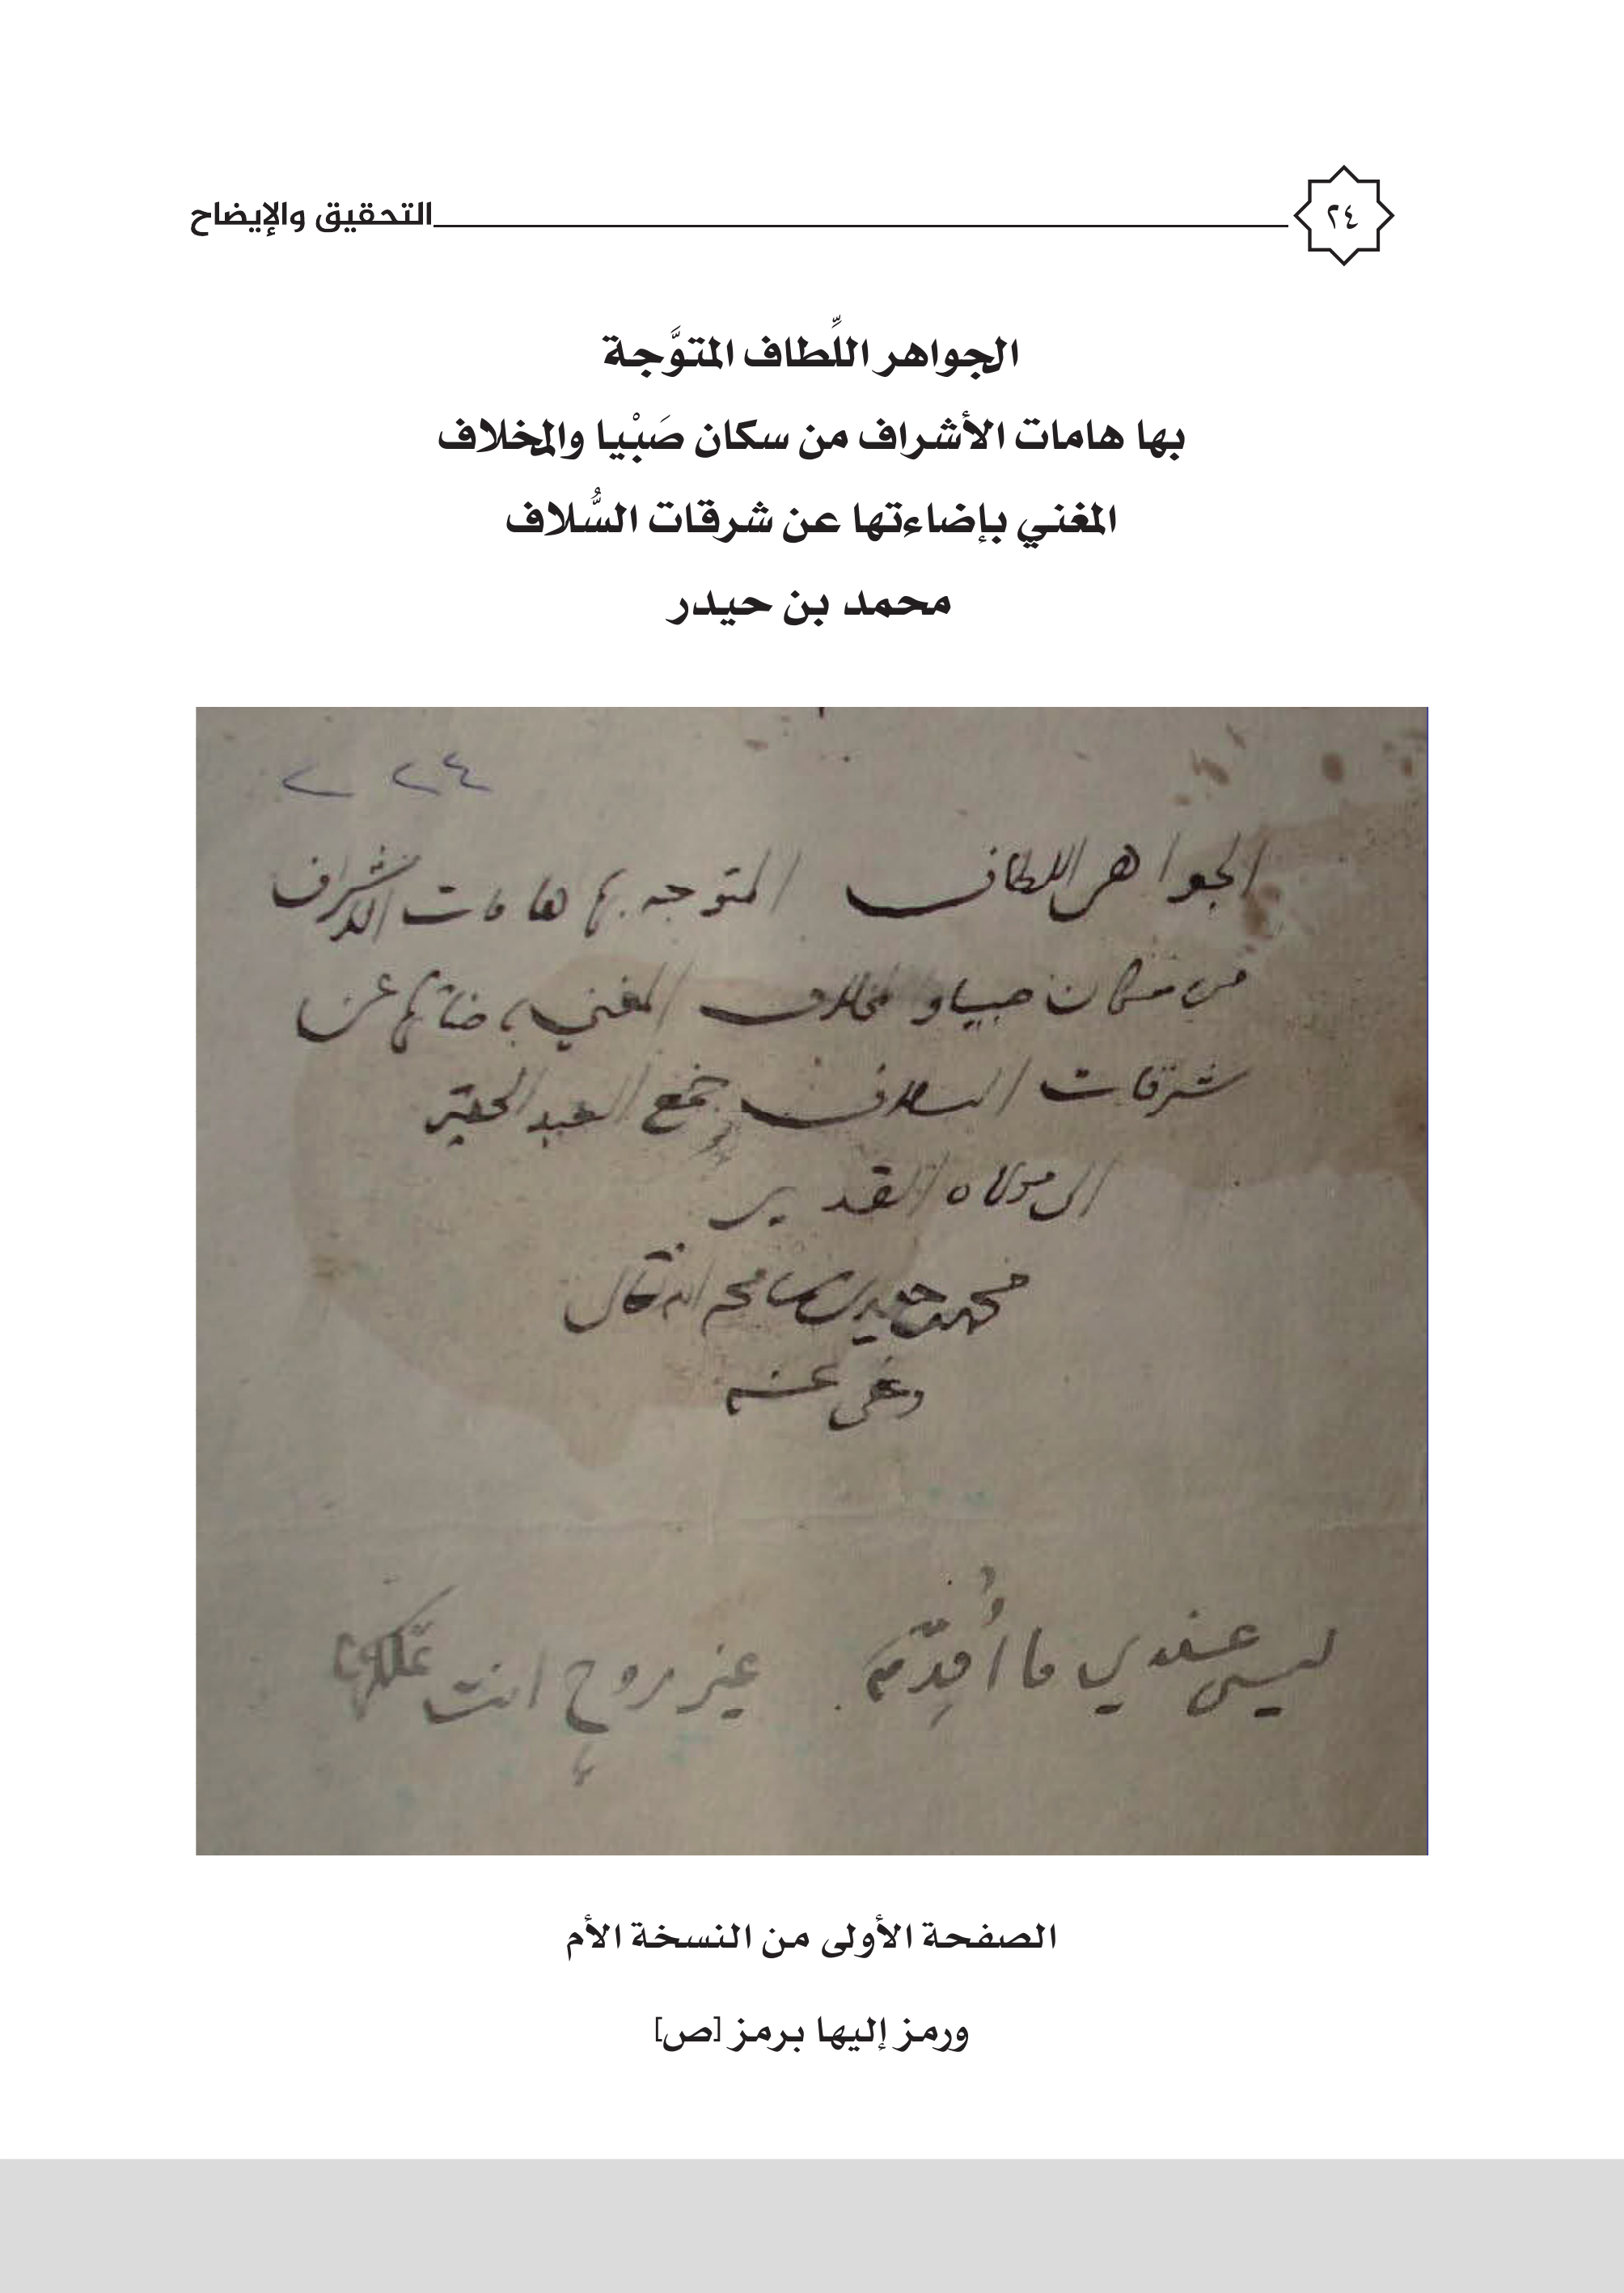 ٢٤
التحقيق والإيضاح
الجواهر اللِّطاف المتوَّجة
بها هامات الأشراف من سكان صَبْيا والمخلاف
المغني بإضاءتها عن شرقات السُّلاف
محمد بن حيدر
٢٤ ٢
الجواهر اللطاف المتوجه بها هامات الاشراف
من سكان صبيا والمخلاف المغني باضاتها عن
شرقات السلاف جمع العبد الحقير
الى مولاه القدير
محمد حيدر سامحه الله تعالى
وعفى عنه
ليس عندي ما أُقدِّمه غير روحٍ انت تملكها
الصفحة الأولى من النسخة الأم
ورمز إليها برمز [ص]